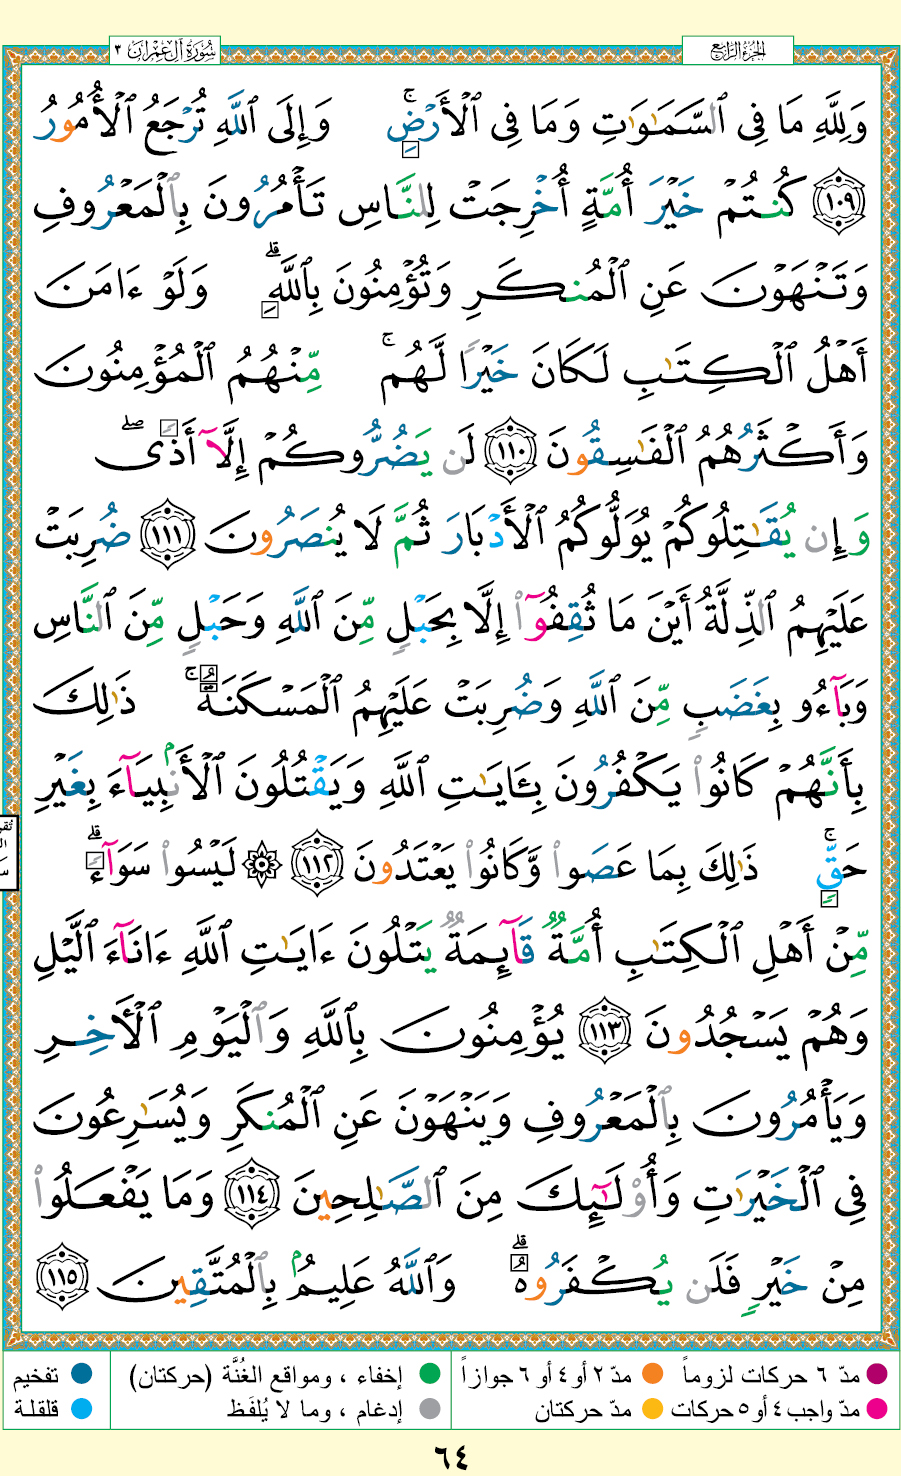 سُورَةُ آلِ عِمْرَانَ ٣
الجزء الرابع
وَلِلَّهِ مَا فِي ٱلسَّمَٰوَٰتِ وَمَا فِي ٱلْأَرْضِۚ وَإِلَى ٱللَّهِ تُرْجَعُ ٱلْأُمُورُ
١٠٩ كُنتُمْ خَيْرَ أُمَّةٍ أُخْرِجَتْ لِلنَّاسِ تَأْمُرُونَ بِٱلْمَعْرُوفِ
وَتَنْهَوْنَ عَنِ ٱلْمُنكَرِ وَتُؤْمِنُونَ بِٱللَّهِۗ وَلَوْ ءَامَنَ
أَهْلُ ٱلْكِتَٰبِ لَكَانَ خَيْرًا لَّهُمۚ مِّنْهُمُ ٱلْمُؤْمِنُونَ
وَأَكْثَرُهُمُ ٱلْفَٰسِقُونَ ١١٠ لَن يَضُرُّوكُمْ إِلَّآ أَذًىۖ
وَإِن يُقَٰتِلُوكُمْ يُوَلُّوكُمُ ٱلْأَدْبَارَ ثُمَّ لَا يُنصَرُونَ ١١١ ضُرِبَتْ
عَلَيْهِمُ ٱلذِّلَّةُ أَيْنَ مَا ثُقِفُوٓا۟ إِلَّا بِحَبْلٍ مِّنَ ٱللَّهِ وَحَبْلٍ مِّنَ ٱلنَّاسِ
وَبَآءُو بِغَضَبٍ مِّنَ ٱللَّهِ وَضُرِبَتْ عَلَيْهِمُ ٱلْمَسْكَنَةُۚ ذَٰلِكَ
بِأَنَّهُمْ كَانُوا۟ يَكْفُرُونَ بِـَٔايَٰتِ ٱللَّهِ وَيَقْتُلُونَ ٱلْأَنۢبِيَآءَ بِغَيْرِ
حَقٍّۚ ذَٰلِكَ بِمَا عَصَوا۟ وَّكَانُوا۟ يَعْتَدُونَ ١١٢ ۞ لَيْسُوا۟ سَوَآءًۗ
مِّنْ أَهْلِ ٱلْكِتَٰبِ أُمَّةٌ قَآئِمَةٌ يَتْلُونَ ءَايَٰتِ ٱللَّهِ ءَانَآءَ ٱلَّيْلِ
وَهُمْ يَسْجُدُونَ ١١٣ يُؤْمِنُونَ بِٱللَّهِ وَٱلْيَوْمِ ٱلْأَخِرِ
وَيَأْمُرُونَ بِٱلْمَعْرُوفِ وَيَنْهَوْنَ عَنِ ٱلْمُنكَرِ وَيُسَٰرِعُونَ
فِي ٱلْخَيْرَٰتِ وَأُو۟لَٰٓئِكَ مِنَ ٱلصَّٰلِحِينَ ١١٤ وَمَا يَفْعَلُوا۟
مِنْ خَيْرٍ فَلَن يُكْفَرُوهُۗ وَٱللَّهُ عَلِيمٌۢ بِٱلْمُتَّقِينَ ١١٥
مدّ ٦ حركات لزوماً مدّ ٢ أو ٤ أو ٦ جوازاً إخفاء ، ومواقع الغُنَّة (حركتان) تفخيم
مدّ واجب ٤ أو ٥ حركات مدّ حركتان إدغام ، وما لا يُلفَظ قلقلة
٦٤